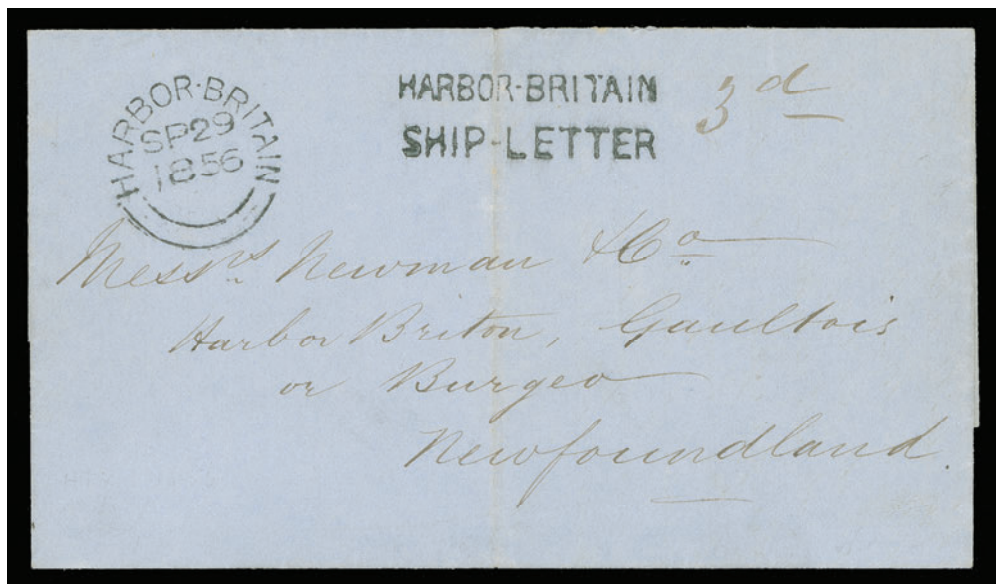 HARBOR·BRITAIN
SP29
1856
HARBOR-BRITAIN
SHIP-LETTER
3d
Messrs. Newman & Co
Harbor Briton, Gaultois
or Burgeo
Newfoundland.